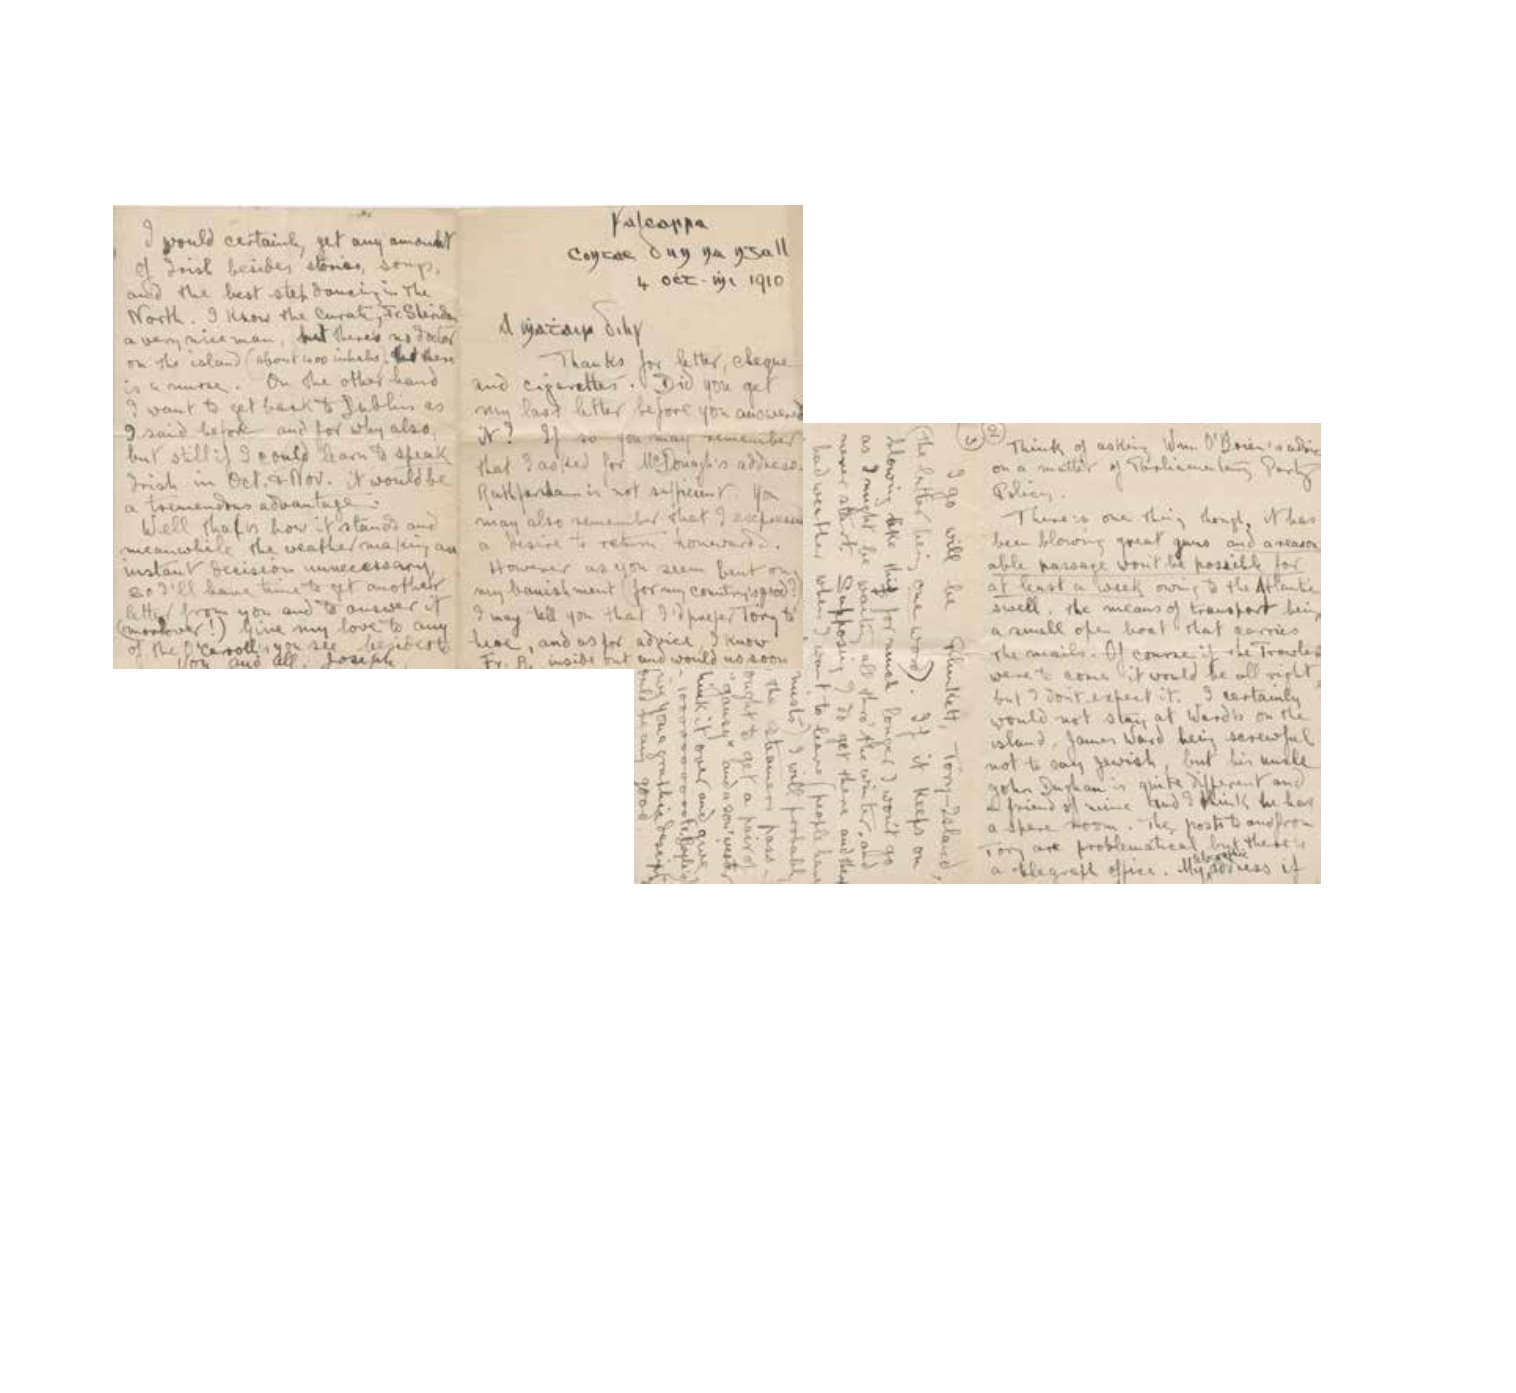 Falcarra
4 Oct- 1910
Thanks for letter, cheque
and cigarettes. Did you get
my last letter before you answered
it? If so you may remember
that I asked for McDonagh's address.
Rathfarnham is not sufficient. You
may also remember that I expressed
a desire to return homewards.
However as you seem bent on
my banishment (for my country's good?)
I may tell you that I'd prefer Tory to
here, and as for advice I know
Fr. R. inside out and would as soon
②
Think of asking Wm. O'Brien's advice
on a matter of Parliamentary Party
Policy.
There's one thing though, it has
been blowing great guns and a reason
able passage won't be possible for
at least a week owing to the Atlantic
swell, the means of transport being
a small open boat that carries
the mails. Of course if the Trawler
were to come it would be all right,
but I don't expect it. I certainly
would not stay at Ward's on the
island, James Ward being screwful
not to say Jewish, but his uncle
John Dughan is quite different and
a friend of mine and I think he has
a spare room. The posts to and from
Tory are problematical but there's
a telegraph office. My telegraphic address if
I go will be Plunkett, Tory-Island,
(the latter being one word). If it keeps on
blowing like this for much longer I won't go
as I might be waiting all thro' the winter, and
never start. Supposing I do get there and then
bad weather when I want to leave (people have
I will probably
the steamers pass.
ought to get a pair of
"gansy" and a sou'wester
think it over and give
I would certainly get any amount
of Irish besides stories, songs,
and the best stepdancing in the
North. I know the Curate, Fr. Sheridan
a very nice man, but there's no doctor
on the island (about 400 inhabs). But there
is a nurse. On the other hand
I want to get back to Dublin as
I said before and for why also,
but still if I could learn to speak
Irish in Oct. & Nov. it would be
a tremendous advantage.
Well that is how it stands and
meanwhile the weather making an
instant decision unnecessary,
so I'll have time to get another
letter from you and to answer it
(moreover!) Give my love to any
of the O'Carrolls you see besides
You and all. Joseph